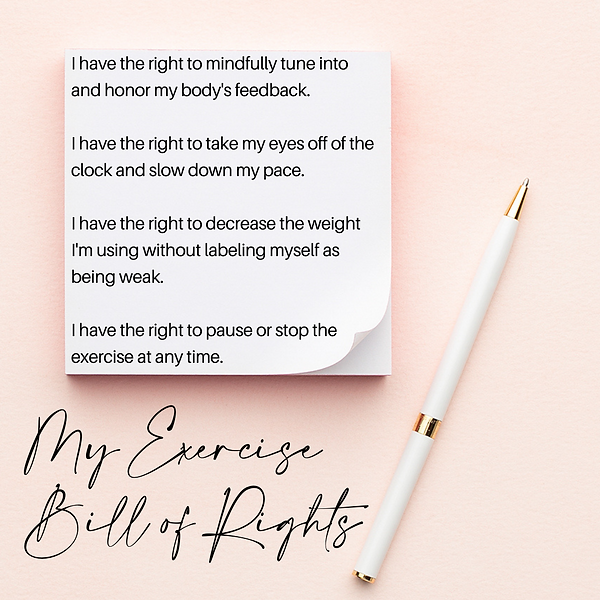 I have the right to mindfully tune into
and honor my body's feedback.
I have the right to take my eyes off of the
clock and slow down my pace.
I have the right to decrease the weight
I'm using without labeling myself as
being weak.
I have the right to pause or stop the
exercise at any time.
My Exercise
Bill of Rights